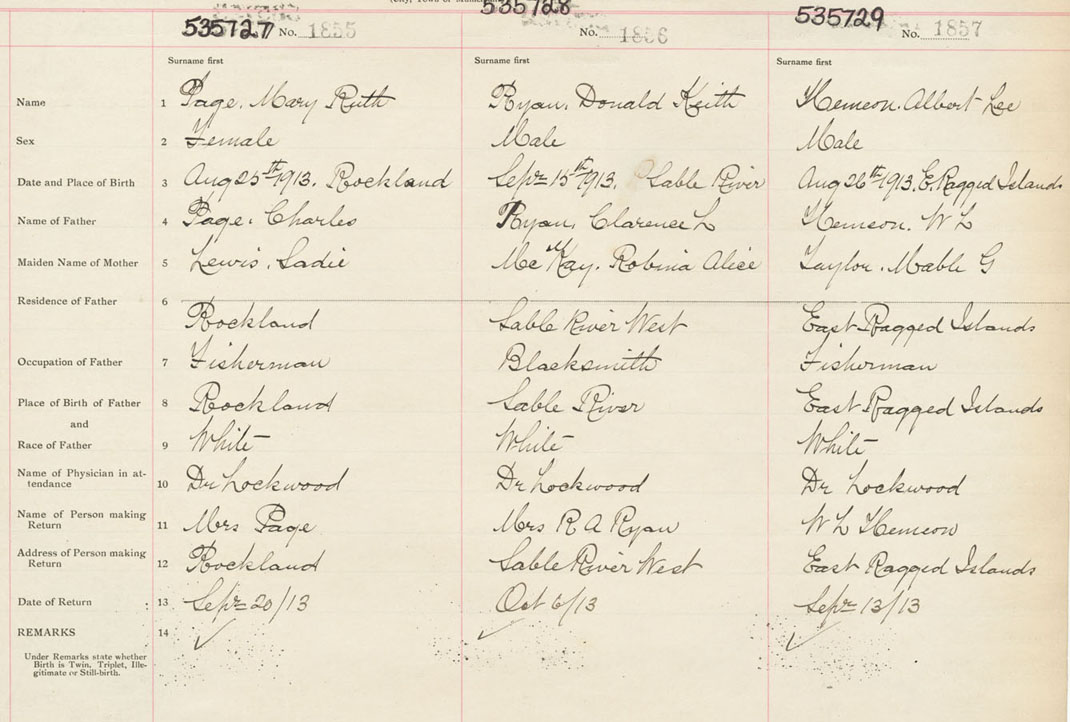 535727 No. 1855
535728 No. 1856
535729 No. 1857
Surname first Surname first Surname first
Name 1 Page, Mary Ruth Ryan, Donald Keith Hemeon, Albert Lee
Sex 2 Female Male Male
Date and Place of Birth 3 Aug 25th 1913. Rockland Sepr 15th 1913. Sable River Aug 26th 1913. E Ragged Islands
Name of Father 4 Page, Charles Ryan, Clarence L Hemeon, W L
Maiden Name of Mother 5 Lewis, Sadie McKay, Robina Alice Taylor, Mable G
Residence of Father 6 Rockland Sable River West East Ragged Islands
Occupation of Father 7 Fisherman Blacksmith Fisherman
Place of Birth of Father 8 Rockland Sable River East Ragged Islands
and
Race of Father 9 White White White
Name of Physician in at-
tendance 10 Dr Lockwood Dr Lockwood Dr Lockwood
Name of Person making
Return 11 Mrs Page Mrs R A Ryan W L Hemeon
Address of Person making
Return 12 Rockland Sable River West East Ragged Islands
Date of Return 13 Sepr 20/13 Oct 6/13 Sepr 13/13
REMARKS 14
Under Remarks state whether
Birth is Twin, Triplet, Ille-
gitimate or Still-birth.